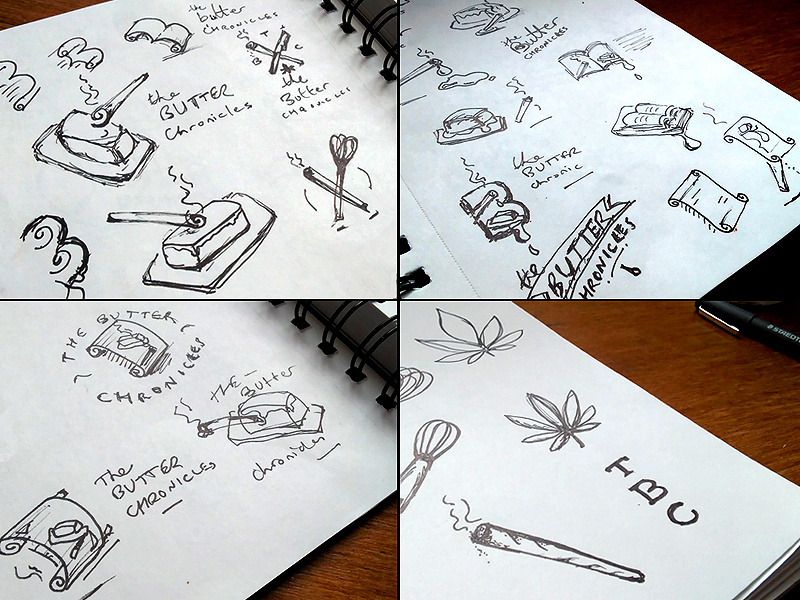 the
butter
CHRONICLES
the
BUTTER
Chronicles
T
B
C
the
Butter
CHRONICLES
the
Butter
CHRONICLES
the
BUTTER
chronic
the
BUTTER
CHRONICLES
THE BUTTER
CHRONICLES
THE
Butter
chronicles
The
BUTTER
CHRONICLES
T
B
C
STAEDTL